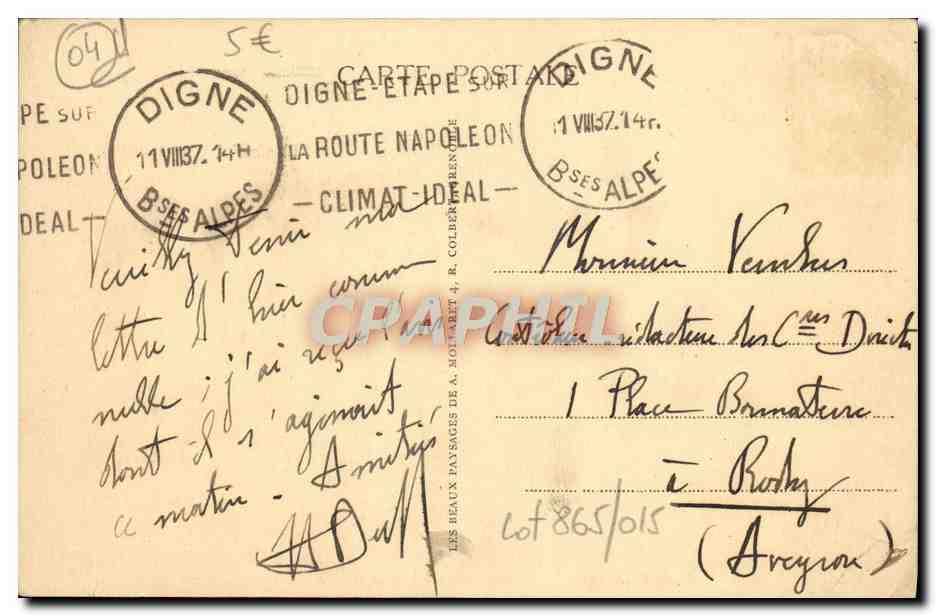 04
5€
CARTE POSTALE
PE SUR
POLEON
DEAL —
DIGNE
11 VIII 37. 14H
BSES ALPES
DIGNE-ETAPE SUR
LA ROUTE NAPOLEON
— CLIMAT-IDEAL —
DIGNE
11 VIII 37. 14H
BSES ALPES
Veuillez tenir ma
lettre d'hier comme
nulle ; j'ai reçu l'
dont il s'agissait
ce matin - Amitiés
LES BEAUX PAYSAGES DE A. MOLLARET 4, R. COLBERT GRENOBLE
CPAPHIL
Monsieur
Contrôleur rédacteur des Cres Directes
1 Place
à Rodez
(Aveyron)
Lot 865/015